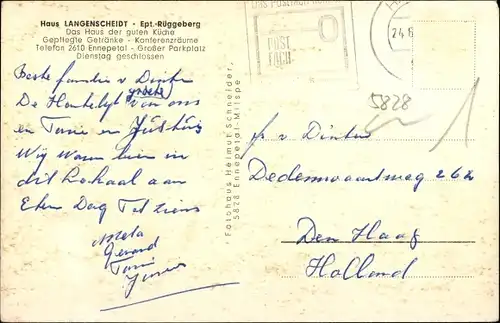 Haus LANGENSCHEIDT - Ept.-Rüggeberg
Das Haus der guten Küche
Gepflegte Getränke - Konferenzräume
Telefon 2610 Ennepetal - Großer Parkplatz
Dienstag geschlossen
Beste familie v Dinter
De Hartelyke groete van ons
en Toni en
Wij Waren hier in
dit Lokaal aan
Eten Dag Tot Ziens
Gerard
Toni
Fotohaus Helmut Schneider,
5828 Ennepetal-Milspe
POST
FACH
24.6
5828
1
v Dinter
Dedemsvaartweg 262
Den Haag
Holland